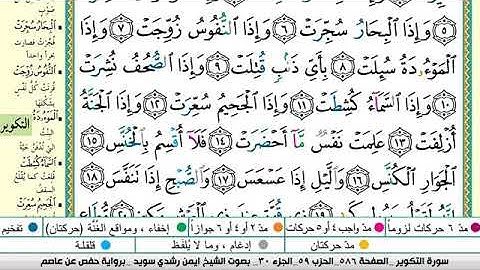 ٥ وَإِذَا ٱلْبِحَارُ سُجِّرَتْ ٦ وَإِذَا ٱلنُّفُوسُ زُوِّجَتْ ٧ وَإِذَا
ٱلْمَوْءُۥدَةُ سُئِلَتْ ٨ بِأَىِّ ذَنۢبٍ قُتِلَتْ ٩ وَإِذَا ٱلصُّحُفُ نُشِرَتْ
١٠ وَإِذَا ٱلسَّمَآءُ كُشِطَتْ ١١ وَإِذَا ٱلْجَحِيمُ سُعِّرَتْ ١٢ وَإِذَا ٱلْجَنَّةُ
أُزْلِفَتْ ١٣ عَلِمَتْ نَفْسٌ مَّآ أَحْضَرَتْ ١٤ فَلَآ أُقْسِمُ بِٱلْخُنَّسِ ١٥
ٱلْجَوَارِ ٱلْكُنَّسِ ١٦ وَٱلَّيْلِ إِذَا عَسْعَسَ ١٧ وَٱلصُّبْحِ إِذَا تَنَفَّسَ ١٨
البِحَارُ سُجِّرَتْ
النُّفُوسُ زُوِّجَتْ
المَوْءُودَةُ
السَّمَاءُ كُشِطَتْ
الجَحِيمُ سُعِّرَتْ
التكوير
مدّ ٦ حركات لزوماً
مدّ واجب ٤ أو ٥ حركات
مدّ ٢ أو ٤ أو ٦ جوازاً
إخفاء، ومواقع الغُنَّة (حركتان)
تفخيم
مدّ حركتان
إدغام، وما لا يُلفَظ
قلقلة
سورة التكوير - الصفحة ٥٨٦ - الحزب ٥٩ - الجزء ٣٠ - بصوت الشيخ ايمن رشدي سويد - برواية حفص عن عاصم